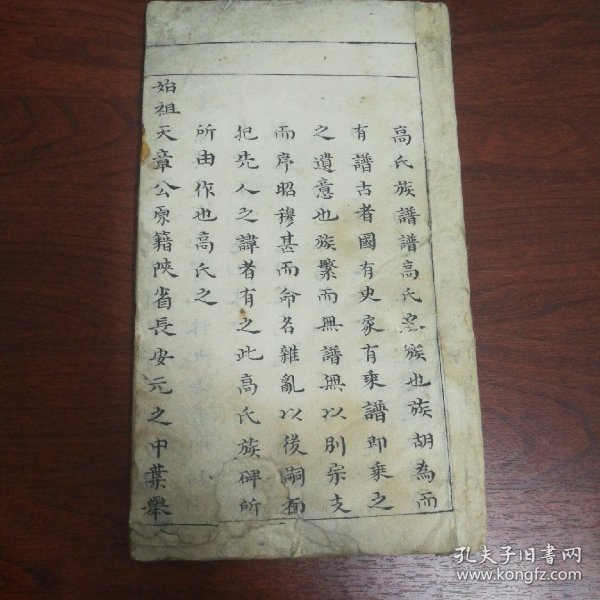 高氏族譜譜高氏之族也族胡為而
有譜古者國有史家有乘譜即乘之
之遺意也族繁而無譜無以別宗支
而序昭穆甚而命名雜亂以後嗣而
犯先人之諱者有之此高氏族碑所
所由作也高氏之
始祖天章公原籍陝省長安元之中葉舉
孔夫子旧書网
www.kongfz.com